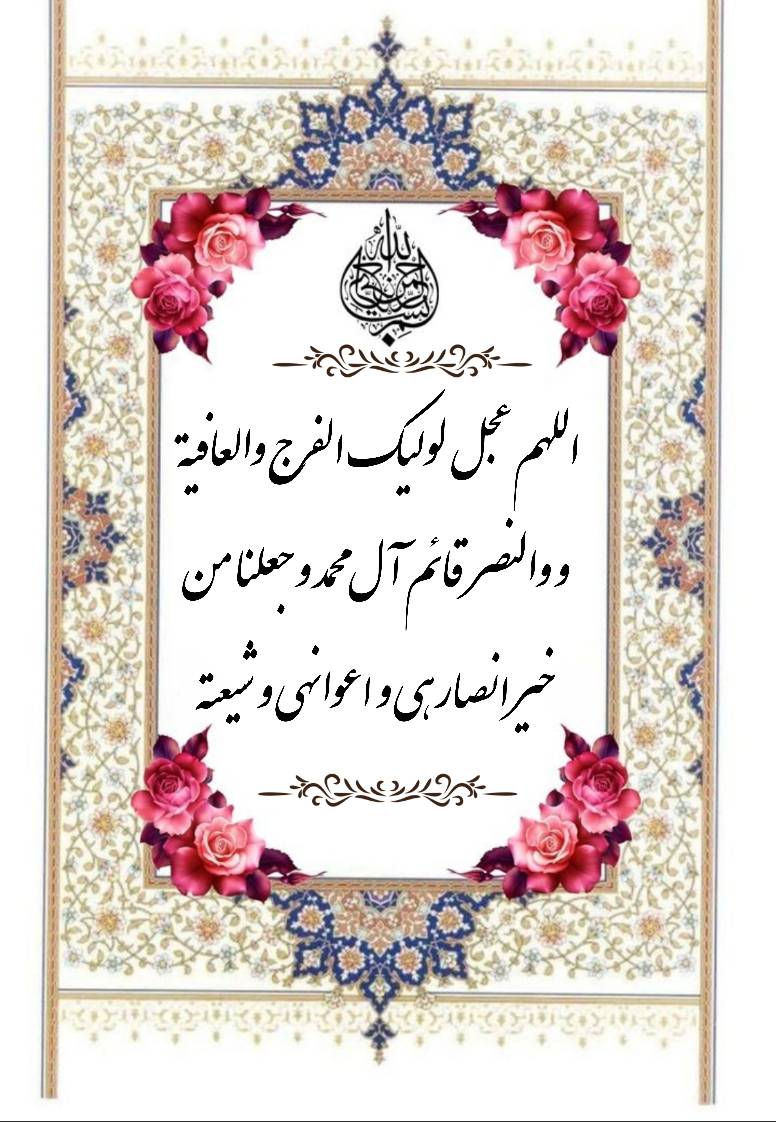 بسم الله الرحمن الرحیم
اللهم عجل لولیک الفرج والعافیة
و والنصر قائم آل محمد و جعلنا من
خیر انصارهی و اعوانهی و شیعته